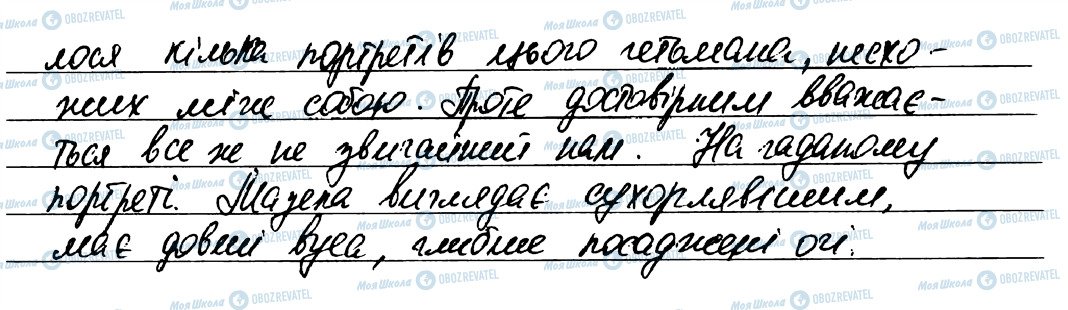 лося кілька портретів цього гетьмана, несхо-
жих між собою. Проте достовірним вважає-
ться все же не звичайний нам. На гаданому
портреті. Мазепа виглядає сухорлявішим,
має довші вуса, глибше посаджені очі.